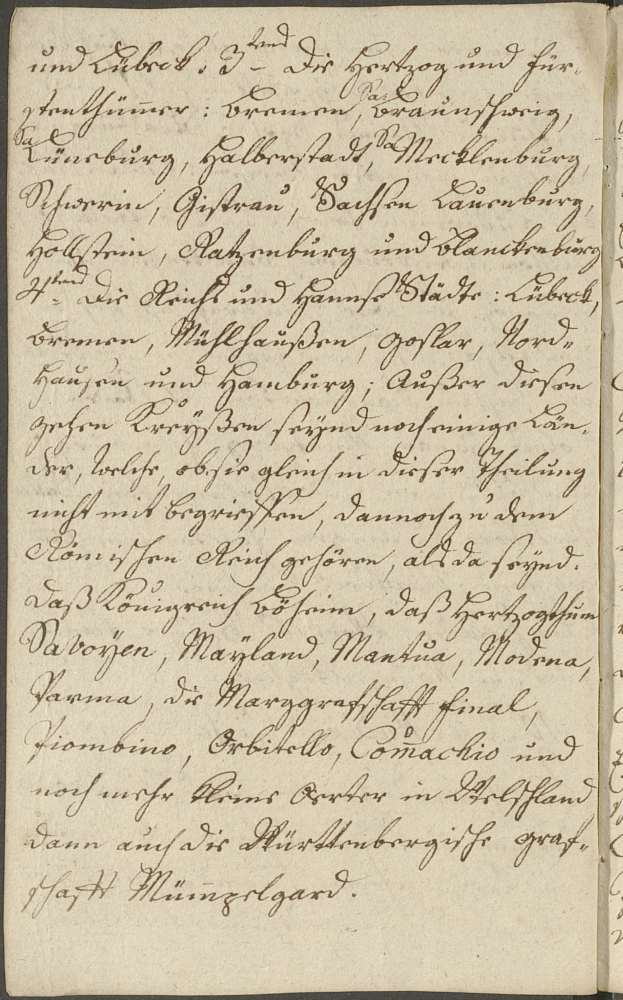 und Lübeck. 3tens Die Hertzog und Für-
stenthümer: Bremen, Braunschweig,
Lüneburg, Halberstadt, Mecklenburg,
Schwerin, Gistrau, Sachsen Lauenburg,
Hollstein, Ratzenburg und Blanckenburg
4tens Die Reichs und Hannse Städte: Lübeck,
Bremen, Mühlhaußen, Goslar, Nord-
hausen und Hamburg; Außer diesen
zehen Kreyßen seynd noch einige Län-
der, welche, ob sie gleich in dieser Theilung
nicht mit begrieffen, dannoch zu dem
Römischen Reich gehören, als da seynd.
Daß Königreich Böheim, daß Hertzogthum
Savoyen, Mayland, Mantua, Modena,
Parma, die Marggrafschafft Final,
Piombino, Orbitello, Com̅achio und
noch mehr kleine Oerter in Welschland
dann auch die Württenbergische Graf-
schafft Müm̅pelgard.